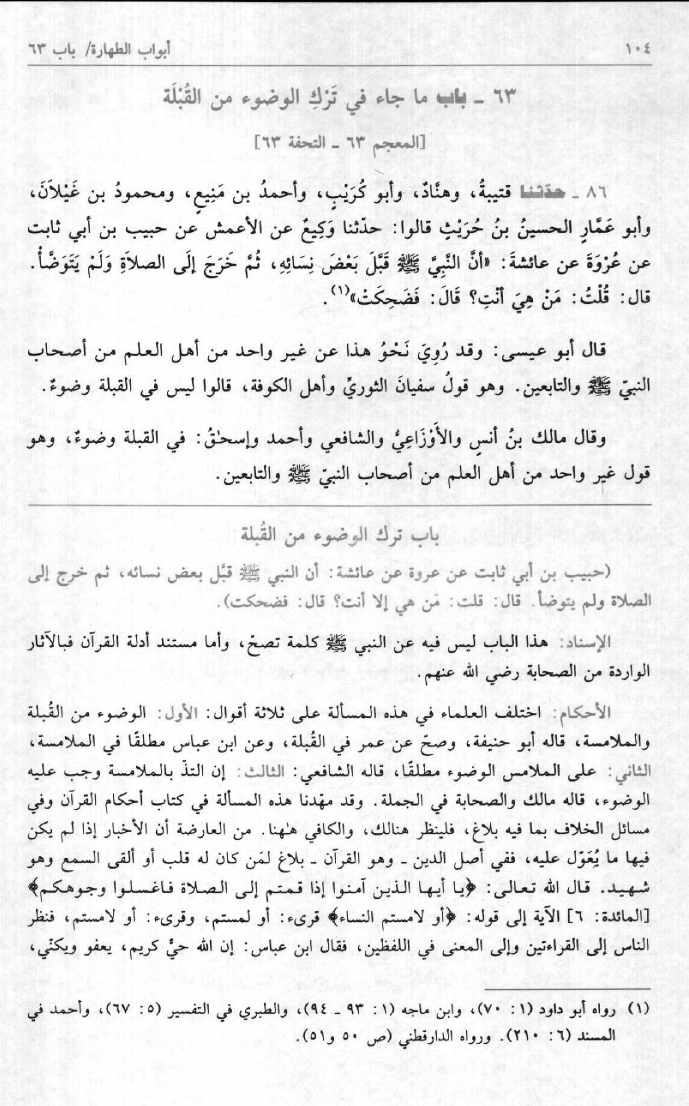 ١٠٤
أبواب الطهارة/ باب ٦٣
٦٣ - باب ما جاء في تَرْكِ الوضوء من القُبْلَة
[المعجم ٦٣ - التحفة ٦٣]
٨٦ - حدّثنا قتيبةُ، وهنادٌ، وأبو كُرَيْبٍ، وأحمدُ بن مَنِيعٍ، ومحمودُ بن غَيْلَانَ،
وأبو عَمَّارٍ الحسينُ بنُ حُرَيْثٍ قالوا: حدّثنا وَكِيعٌ عن الأعمش عن حبيب بن أبي ثابت
عن عُرْوَةَ عن عائشةَ: «أنَّ النَّبِيَّ ﷺ قَبَّلَ بَعْضَ نِسَائِهِ، ثُمَّ خَرَجَ إلَى الصلاَةِ وَلَمْ يَتَوَضَّأْ.
قال: قُلْتُ: مَنْ هِيَ أنْتِ؟ قَالَ: فَضَحِكَتْ»(١).
قال أبو عيسى: وقد رُوِيَ نَحْوُ هذا عن غير واحد من أهل العلم من أصحاب
النبيّ ﷺ والتابعين. وهو قولُ سفيانَ الثوريِّ وأهل الكوفة، قالوا ليس في القبلة وضوءٌ.
وقال مالك بنُ أنسٍ والأَوْزَاعِيُّ والشافعي وأحمد وإسحٰقُ: في القبلة وضوءٌ، وهو
قول غير واحد من أهل العلم من أصحاب النبيّ ﷺ والتابعين.
باب ترك الوضوء من القُبلة
(حبيب بن أبي ثابت عن عروة عن عائشة: أن النبي ﷺ قبَّل بعض نسائه، ثم خرج إلى
الصلاة ولم يتوضأ. قال: قلت: مَن هي إلا أنت؟ قال: فضحكت).
الإسناد: هذا الباب ليس فيه عن النبي ﷺ كلمة تصحّ، وأما مستند أدلة القرآن فبالآثار
الواردة من الصحابة رضي الله عنهم.
الأحكام: اختلف العلماء في هذه المسألة على ثلاثة أقوال: الأول: الوضوء من القُبلة
والملامسة، قاله أبو حنيفة، وصحّ عن عمر في القُبلة، وعن ابن عباس مطلقًا في الملامسة،
الثاني: على الملامس الوضوء مطلقًا، قاله الشافعي: الثالث: إن التذّ بالملامسة وجب عليه
الوضوء، قاله مالك والصحابة في الجملة. وقد مهّدنا هذه المسألة في كتاب أحكام القرآن وفي
مسائل الخلاف بما فيه بلاغ، فلينظر هنالك، والكافي هٰهنا. من العارضة أن الأخبار إذا لم يكن
فيها ما يُعَوّل عليه، ففي أصل الدين - وهو القرآن - بلاغ لمَن كان له قلب أو ألقى السمع وهو
شهيد. قال الله تعالى: ﴿يا أيها الذين آمنوا إذا قمتم إلى الصلاة فاغسلوا وجوهكم﴾
[المائدة: ٦] الآية إلى قوله: ﴿أو لامستم النساء﴾ قرىء: أو لمستم، وقرىء: أو لامستم، فنظر
الناس إلى القراءتين وإلى المعنى في اللفظين، فقال ابن عباس: إن الله حيٌّ كريم، يعفو ويكنّي،
(١) رواه أبو داود (١: ٧٠)، وابن ماجه (١: ٩٣ - ٩٤)، والطبري في التفسير (٥: ٦٧)، وأحمد في
المسند (٦: ٢١٠). ورواه الدارقطني (ص ٥٠ و٥١).